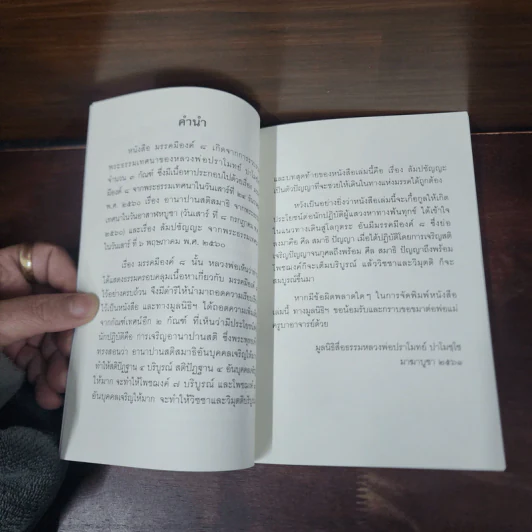 คำนำ
หนังสือ มรรคมีองค์ ๘ เกิดจากการ
พระธรรมเทศนาของหลวงพ่อปราโมทย์
จำนวน ๓ กัณฑ์ ซึ่งมีเนื้อหาประกอบไปด้วยเรื่อง
มีองค์ ๘ จากพระธรรมเทศนาในวันเสาร์ที่
พ.ศ. ๒๕๖๐ เรื่อง อานาปานสติสมาธิ จากพระธรรม
เทศนาในวันอาสาฬหบูชา (วันเสาร์ ที่ ๘ กรกฎาคม
๒๕๖๐) และเรื่อง สัมปชัญญะ จากพระธรรมเทศนา
ในวันเสาร์ ที่ ๖ พฤษภาคม พ.ศ. ๒๕๖๐
เรื่อง มรรคมีองค์ ๘ นั้น หลวงพ่อเห็นว่า
ได้แสดงธรรมครอบคลุมเนื้อหาเกี่ยวกับ มรรคมีองค์
ไว้อย่างครบถ้วน จึงมีดำริให้นำมาถอดความเรียบเรียง
ไว้เป็นหนังสือ และทางมูลนิธิฯ ได้ถอดความ
จากกัณฑ์เทศน์อีก ๒ กัณฑ์ ที่เห็นว่ามีประโยชน์
นักปฏิบัติคือ การเจริญอานาปานสติ ซึ่งพระพุทธ
ทรงสอนว่า อานาปานสติสมาธิอันบุคคลเจริญให้มาก
ทำให้สติปัฏฐาน ๔ บริบูรณ์ สติปัฏฐาน ๔ อันบุคคล
ให้มาก จะทำให้โพชฌงค์ ๗ บริบูรณ์ และโพชฌงค์
อันบุคคลเจริญให้มาก จะทำให้วิชชาและวิมุตติบริบูรณ์
และบทสุดท้ายของหนังสือเล่มนี้คือ เรื่อง สัมปชัญญะ
เป็นตัวปัญญาที่จะช่วยให้เดินในทางแห่งมรรคได้ถูกต้อง
หวังเป็นอย่างยิ่งว่าหนังสือเล่มนี้จะเกื้อกูลให้เกิด
ประโยชน์ต่อนักปฏิบัติผู้แสวงหาทางพ้นทุกข์ ได้เข้าใจ
ในแนวทางเดินสู่โลกุตระ อันมีมรรคมีองค์ ๘ ซึ่งย่อ
ลงมาคือ ศีล สมาธิ ปัญญา เมื่อได้ปฏิบัติโดยการเจริญสติ
เจริญปัญญาจนกุศลถึงพร้อม ศีล สมาธิ ปัญญาถึงพร้อม
โพชฌงค์ก็จะเต็มบริบูรณ์ แล้ววิชชาและวิมุตติ ก็จะ
สมบูรณ์ขึ้นมา
หากมีข้อผิดพลาดใดๆ ในการจัดพิมพ์หนังสือ
เล่มนี้ ทางมูลนิธิฯ ขอน้อมรับและกราบขอขมาต่อพ่อแม่
ครูบาอาจารย์ด้วย
มูลนิธิสื่อธรรมหลวงพ่อปราโมทย์ ปาโมชฺโช
มาฆบูชา ๒๕๖๑